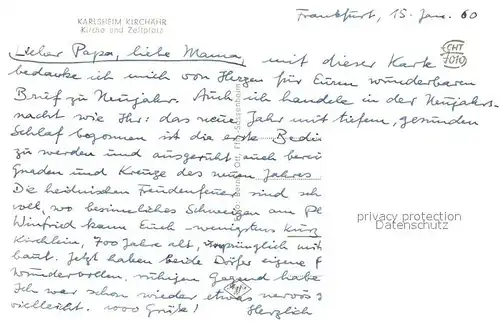 KARLSHEIM KIRCHÄHR
Kirche und Zeltplatz
Frankfurt, 15. Jan. 60
Lieber Papa, liebe Mama, mit dieser Karte
CHT 7010
bedanke ich mich von Herzen für Euren wunderbaren
Brief zu Neujahr. Auch ich handele in der Neujahrs-
nacht wie Ihr: das neue Jahr mit tiefem, gesunden
Schlaf begonnen ist die erste Bedin
zu werden und ausgeruht auch berei
Gnaden und Kreuze des neuen Jahres
Die heidnischen Freudenfeuer sind seh
voll, wo besinnliches Schweigen am Pl
privacy protection
Winfried kann Euch wenigstens kurz
DATENSCHUTZ
Kirchlein, 700 Jahre alt, ursprünglich mit
baut. Jetzt haben beide Dörfer eigene P
wundervollen, ruhigen Gegend habe
Ich war schon wieder etwas nervös
vielleicht. 1000 Grüße! Herzlich